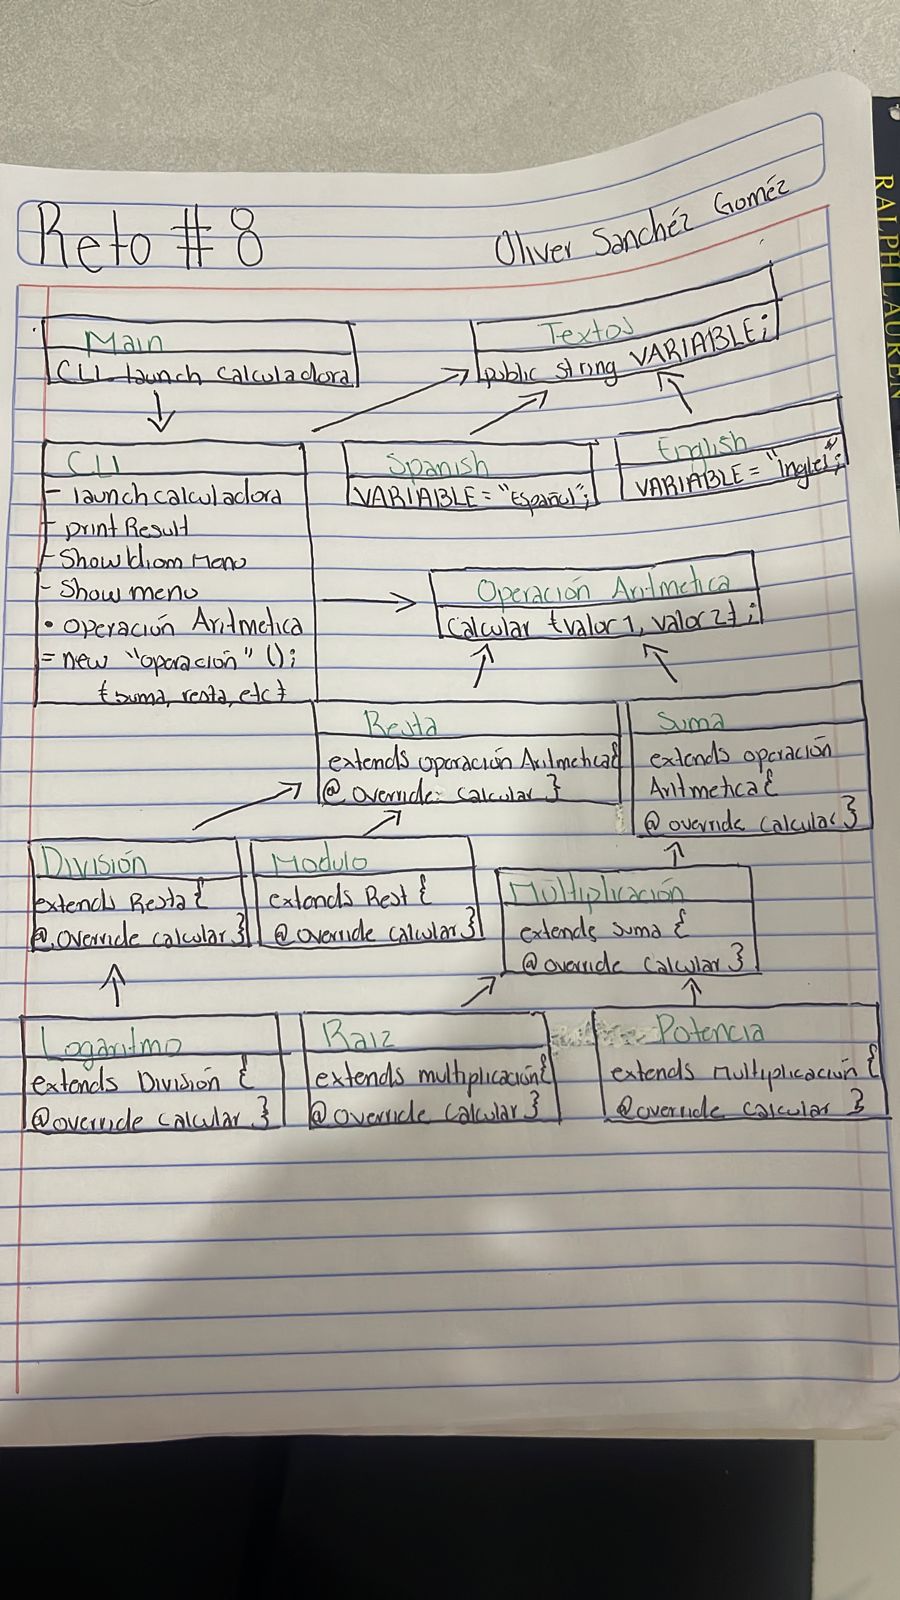 Reto #8
Oliver Sanchéz Goméz
Main
CLI launch Calculadora
Textos
public string VARIABLE;
CLI
- launch calculadora
- print Result
- Show Idiom Meno
- Show meno
• Operación Aritmetica
= new "operación" ();
{suma, resta, etc}
Spanish
VARIABLE = "Español";
English
VARIABLE = "Ingles";
Operación Aritmetica
Calcular {valor 1, valor 2};
Resta
extends operación Aritmetica{
@ override: calcular }
Suma
extends operación
Aritmetica {
@ override calcular }
División
extends Resta {
@ override calcular }
Modulo
extends Rest {
@ override calcular }
Multiplicación
extends suma {
@ override calcular }
Logaritmo
extends División {
@ override calcular }
Raiz
extends multiplicación{
@ override calcular }
Potencia
extends Multyplicación {
@ override calcular }
RALPH LAUREN